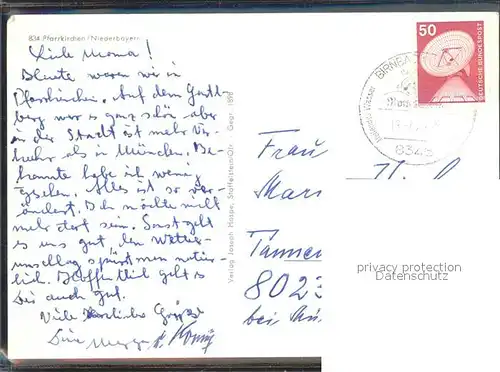 834 Pfarrkirchen / Niederbayern
Liebe Moma!
Heute waren wir in
Pfarrkirchen. Auf dem Gartl-
berg war es ganz schön aber
in der Stadt ist mehr Ver-
kehr als in München. Be-
kannte habe ich wenig
gesehen. Alles ist so ver-
ändert. Ich möchte nicht
mehr dort sein. Sonst geht
es uns gut, den Wetter-
umschlag spürt man natür-
lich. Hoffentlich geht es
Dir auch gut.
Viele herzliche Grüße
Verlag Joseph Haape, Staffelstein/Ofr. Gegr. 1898
50
DEUTSCHE BUNDESPOST
BIRNBA
8345
Frau
Mar
Tannen
8023
bei Mü
privacy protection
Datenschutz